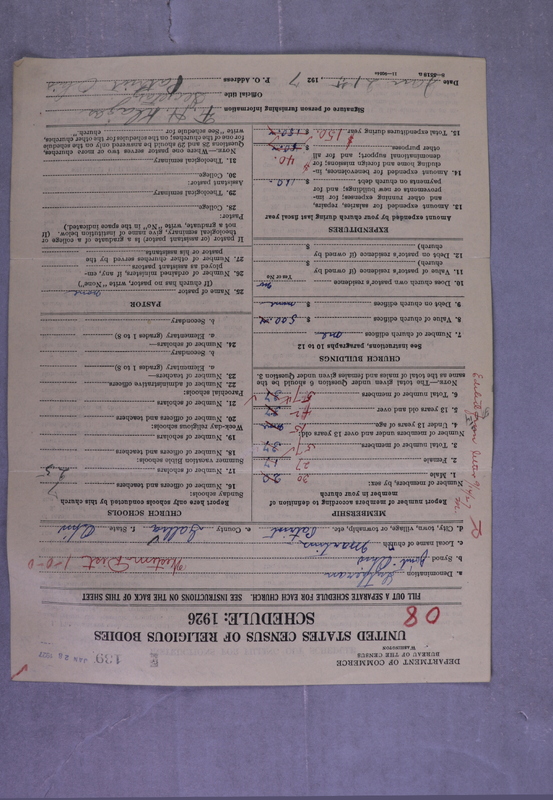 DEPARTMENT OF COMMERCE
BUREAU OF THE CENSUS
WASHINGTON
139
JAN 26 1927
UNITED STATES CENSUS OF RELIGIOUS BODIES
SCHEDULE: 1926
08
FILL OUT A SEPARATE SCHEDULE FOR EACH CHURCH. SEE INSTRUCTIONS ON THE BACK OF THIS SHEET
a. Denomination Lutheran
b. Synod Joint Ohio
1-0-0
c. Local name of church
d. City, town, village, or township, etc. Patriot e. County Gallia f. State Ohio
MEMBERSHIP
Report number of members according to definition of member in your church
Number of members, by sex:
1. Male 30
2. Female 27
3. Total number of members 57
Number of members under and over 13 years old:
4. Under 13 years of age 15
5. 13 years old and over 42
6. Total number of members 57
NOTE.—The total given under Question 6 should be the same as the total of males and females given under Question 3.
CHURCH BUILDINGS
See instructions, paragraphs 10 to 12
7. Number of church edifices one
8. Value of church edifices $ 500.00
9. Debt on church edifices $ none
10. Does church own pastor's residence no
Yes or No
11. Value of pastor's residence (if owned by church) $
12. Debt on pastor's residence (if owned by church) $
EXPENDITURES
Amount expended by your church during last fiscal year
13. Amount expended for salaries, repairs, and other running expenses; for improvements or new buildings; and for payments on church debt
14. Amount expended for benevolences, including home and foreign missions; for denominational support; and for all other purposes 40.
15. Total expenditures during year $ 150.
CHURCH SCHOOLS
Report here only schools conducted by this church
Sunday schools:
16. Number of officers and teachers
17. Number of scholars 25
Summer vacation Bible schools:
18. Number of officers and teachers
19. Number of scholars
Week-day religious schools:
20. Number of officers and teachers
21. Number of scholars
Parochial schools:
22. Number of administrative officers
23. Number of teachers—
a. Elementary (grades 1 to 8)
b. Secondary
24. Number of scholars—
a. Elementary (grades 1 to 8)
b. Secondary
PASTOR
25. Name of pastor none
(If church has no pastor, write "None")
26. Number of ordained ministers, if any, employed as assistant pastors
27. Number of other churches served by the pastor or his assistants
If pastor (or assistant pastor) is a graduate of a college or theological seminary, give name of institution below. (If not a graduate, write "No" in the space indicated.)
Pastor:
28. College
29. Theological seminary
Assistant pastor:
30. College
31. Theological seminary
NOTE.—Where one pastor serves two or more churches, Questions 25 and 29 should be answered only on the schedule for one of the churches; on the schedules for the other churches, write "See schedule for church."
Signature of person furnishing information
Official title Secretary
P. O. Address Patriot Ohio
Date Jan 21st, 1927